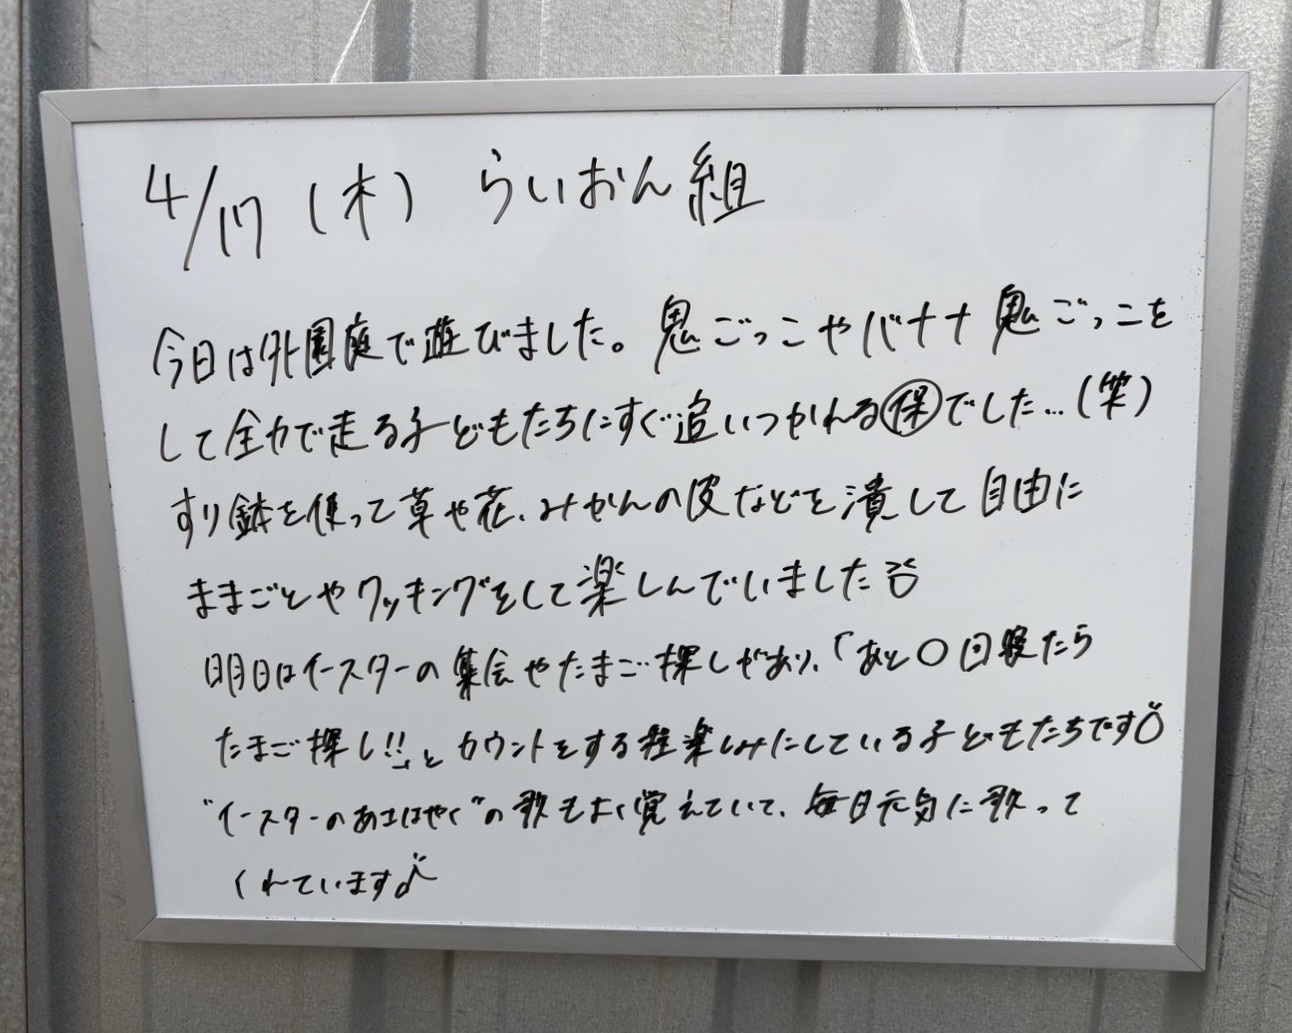 4/17（木） らいおん組
今日は外園庭で遊びました。鬼ごっこやバナナ鬼ごっこを
して全力で走る子どもたちにすぐ追いつかれる㋭でした…（笑）
すり鉢を使って草や花、みかんの皮などを潰して自由に
ままごとやクッキングをして楽しんでいました
明日はイースターの集会やたまご探しがあり、「あと○回寝たら
たまご探し!!」とカウントをする程楽しみにしている子どもたちです
"イースターのあさはやく"の歌もよく覚えていて、毎日元気に歌って
くれています♪